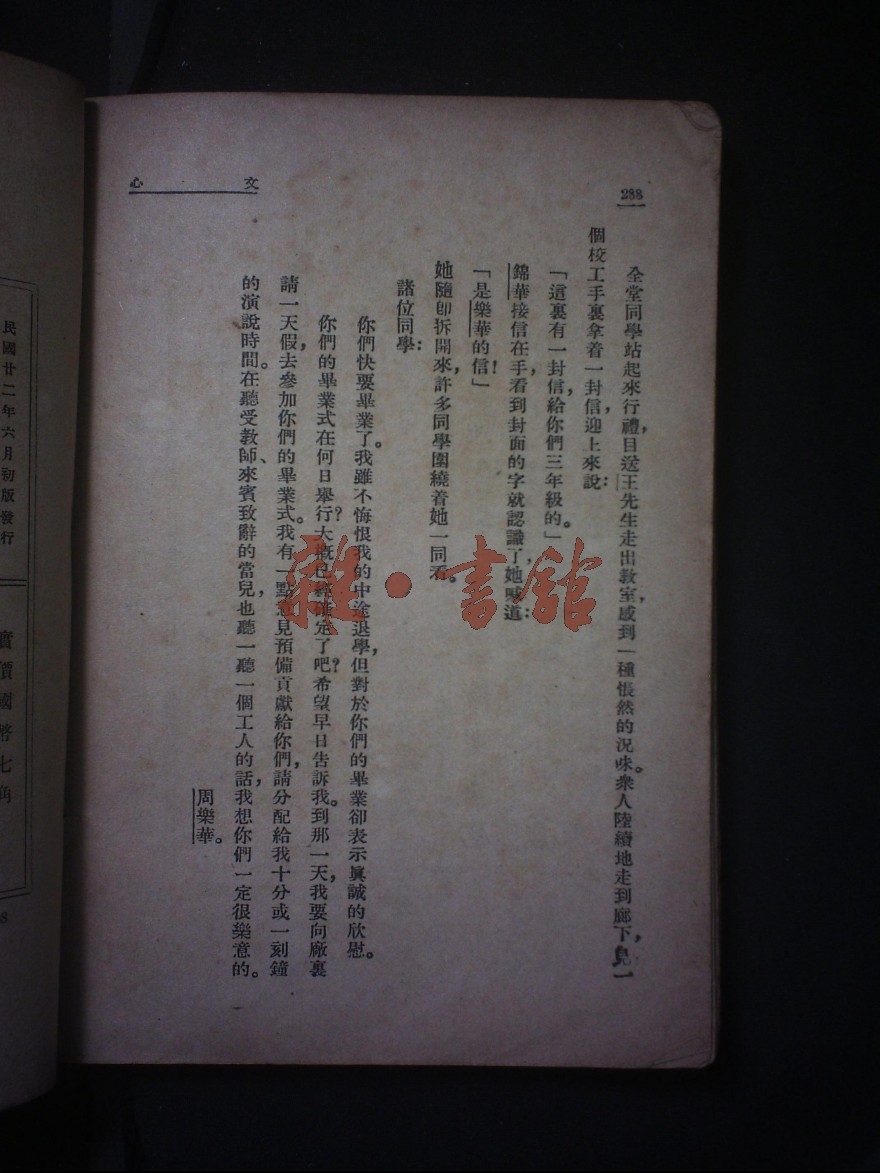 288
文心
全堂同學站起來行禮，目送王先生走出教室，感到一種悵然的況味。衆人陸續地走到廊下，見一
個校工手裏拿着一封信，迎上來說：
「這裏有一封信，給你們三年級的。」
錦華接信在手，看到封面的字就認識了，她喊道：
「是樂華的信！」
她隨卽拆開來，許多同學圍繞着她一同看。
諸位同學：
你們快要畢業了。我雖不悔恨我的中途退學，但對於你們的畢業卻表示眞誠的欣慰。
你們的畢業式在何日舉行？大概已經確定了吧？希望早日告訴我。到那一天，我要向廠裏
請一天假，去參加你們的畢業式。我有一點意見預備貢獻給你們，請分配給我十分或一刻鐘
的演說時間。在聽受教師、來賓致辭的當兒，也聽一聽一個工人的話，我想你們一定很樂意的。
周樂華。
雜·書館
民國廿二年六月初版發行
實價國幣七角
8